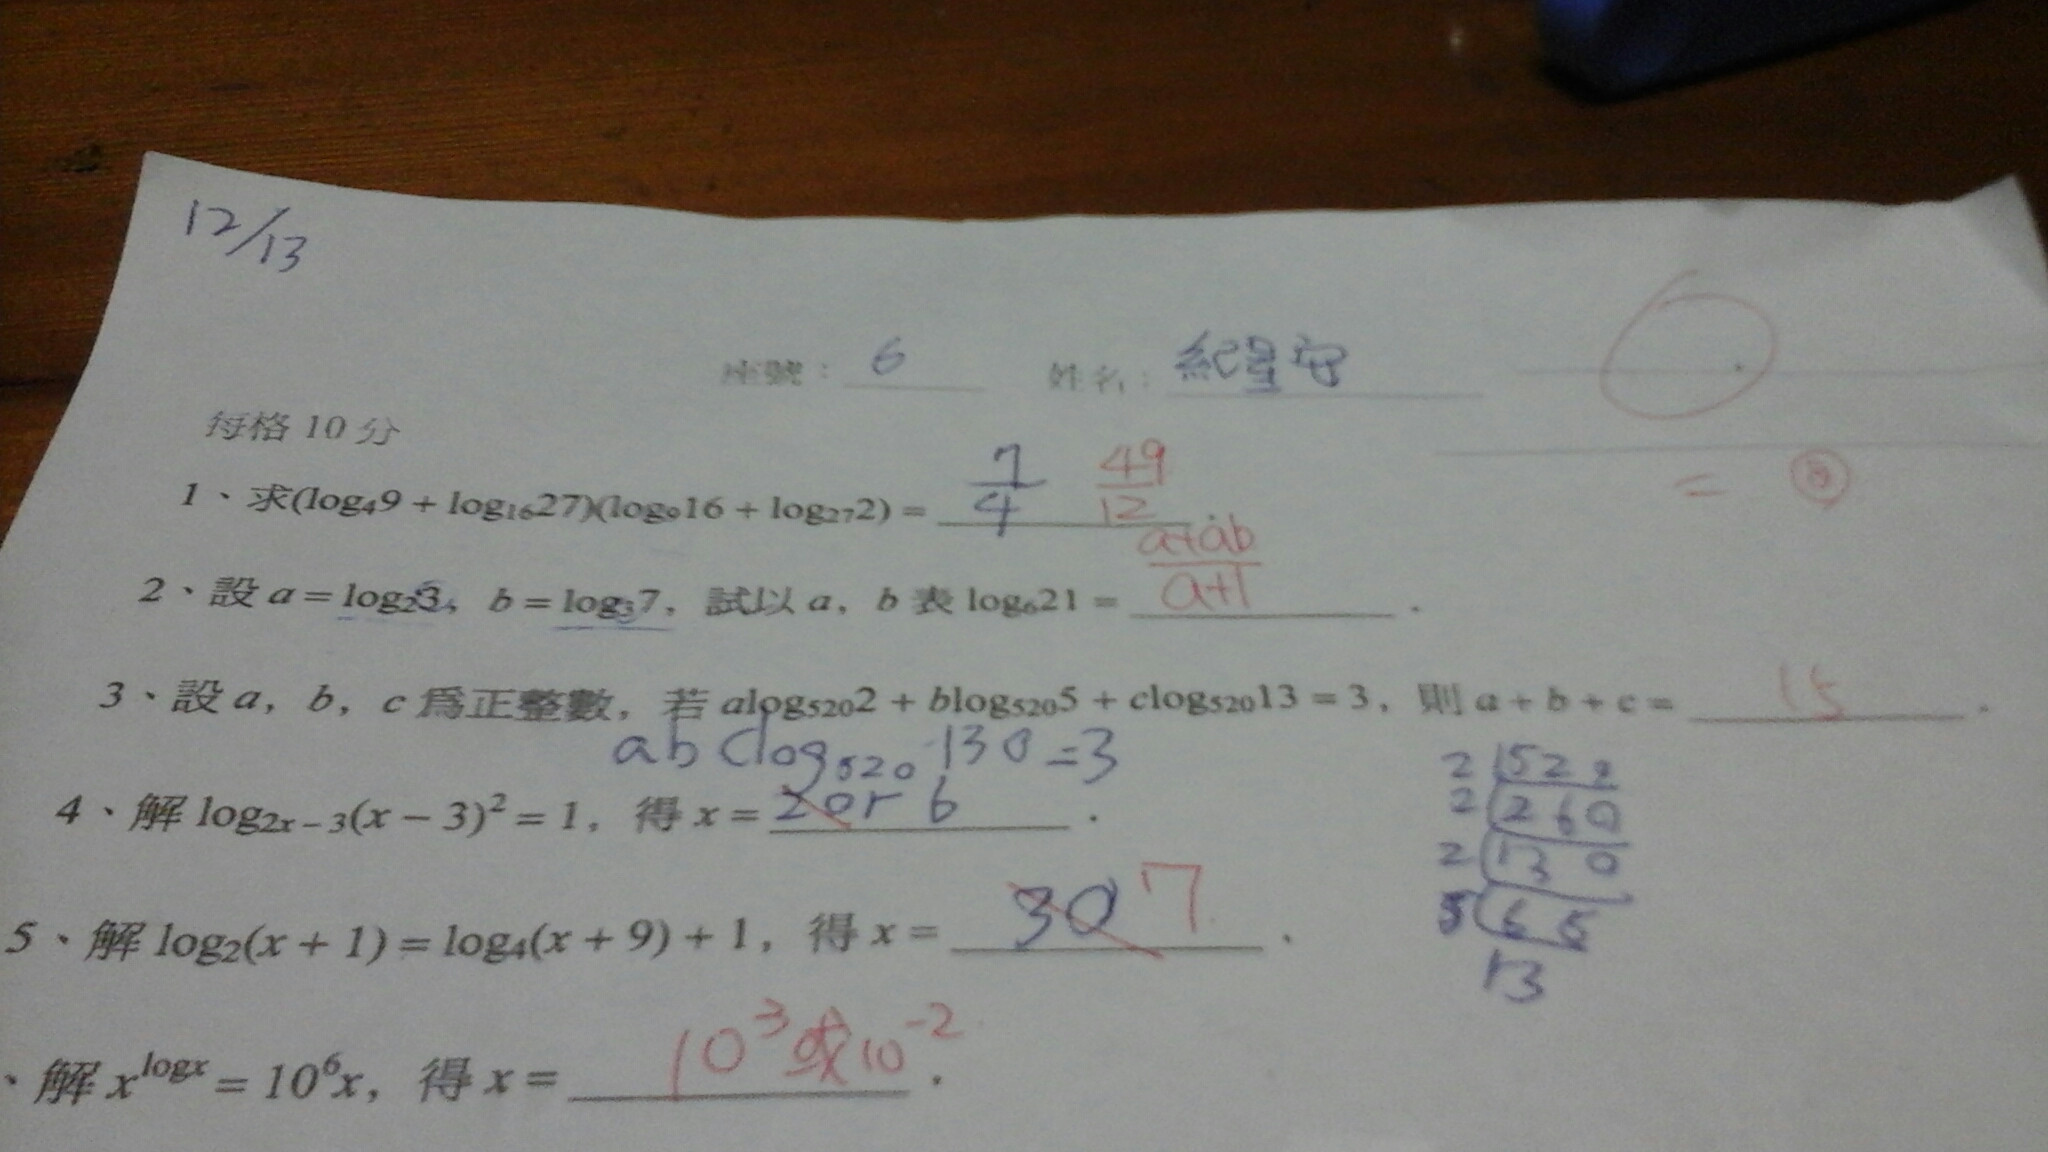 12/13
座號：6 姓名：紀星守
每格10分
= 0
1、求(log₄9 + log₁₆27)(log₉16 + log₂₇2) = 7/4 49/12
2、設 a = log₂3, b = log₃7, 試以 a, b 表 log₆21 = (a+ab)/(a+1) .
3、設 a, b, c 為正整數, 若 alog₅₂₀2 + blog₅₂₀5 + clog₅₂₀13 = 3, 則 a + b + c = 15 .
ab clog₅₂₀ 130 = 3
4、解 log₂ₓ₋₃(x − 3)² = 1, 得 x = 2 or 6 .
2 520
2 260
2 130
5 65
13
5、解 log₂(x + 1) = log₄(x + 9) + 1, 得 x = 30 7 .
、解 x^logx = 10⁶x, 得 x = 10³或10⁻² .